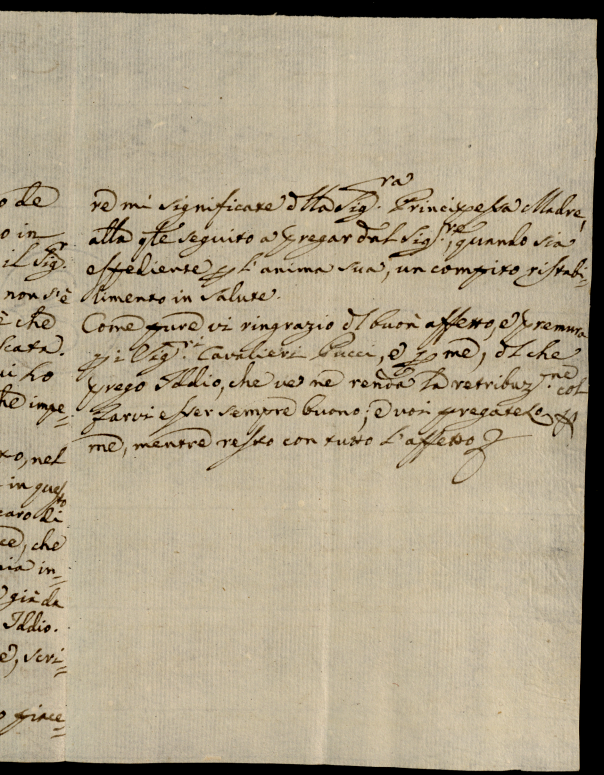 o de
o in
il Sig.r
non s'è
è che
scata.
ui ho
he impe-
to, nel
in questo
caro di
ce, che
mia in=
già da
Iddio.
e, scri=
o piace=
re mi significate dlla Sig.ra Principessa Madre,
alla qle seguito a pregar dal Sig.re, quando sia
espediente p l'anima sua, un compito ristabi-
limento in salute.
Come pure vi ringrazio dl buon affetto, e premura
p i Sig.ri Cavalieri Pucci, e p me, dl che
prego Iddio, che ve ne renda la retribuz.ne col
farvi esser sempre buono; e voi pregatelo p
me, mentre resto con tutto l'affetto